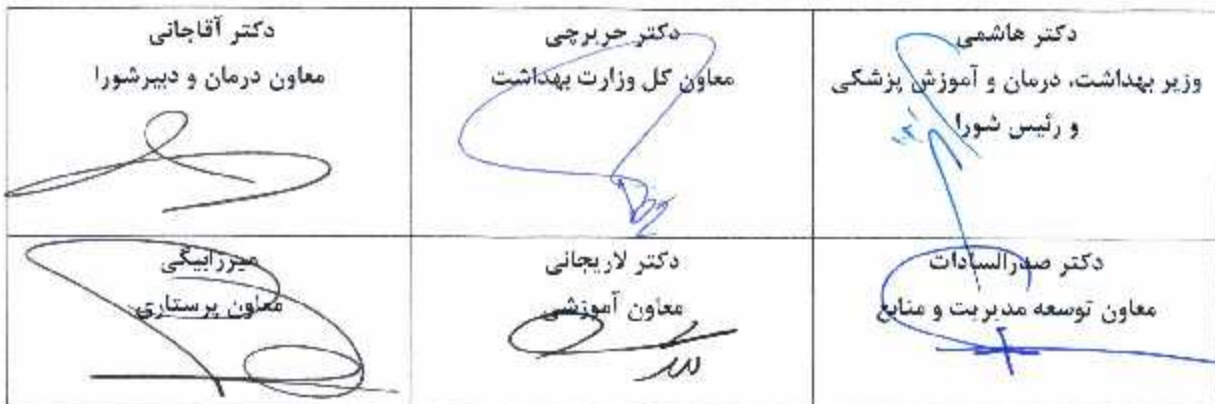 دکتر هاشمی
وزیر بهداشت، درمان و آموزش پزشکی
و رئیس شورا
دکتر حریرچی
معاون کل وزارت بهداشت
دکتر آقاجانی
معاون درمان و دبیرشورا
دکتر صدرالسادات
معاون توسعه مدیریت و منابع
دکتر لاریجانی
معاون آموزشی
میرزابیگی
معاون پرستاری